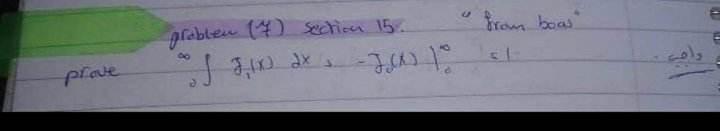 problem (7) section 15. "from boas"
prove ∞ ₀∫ J₁(x) dx = -J₀(x) |₀^∞ = 1 واجب